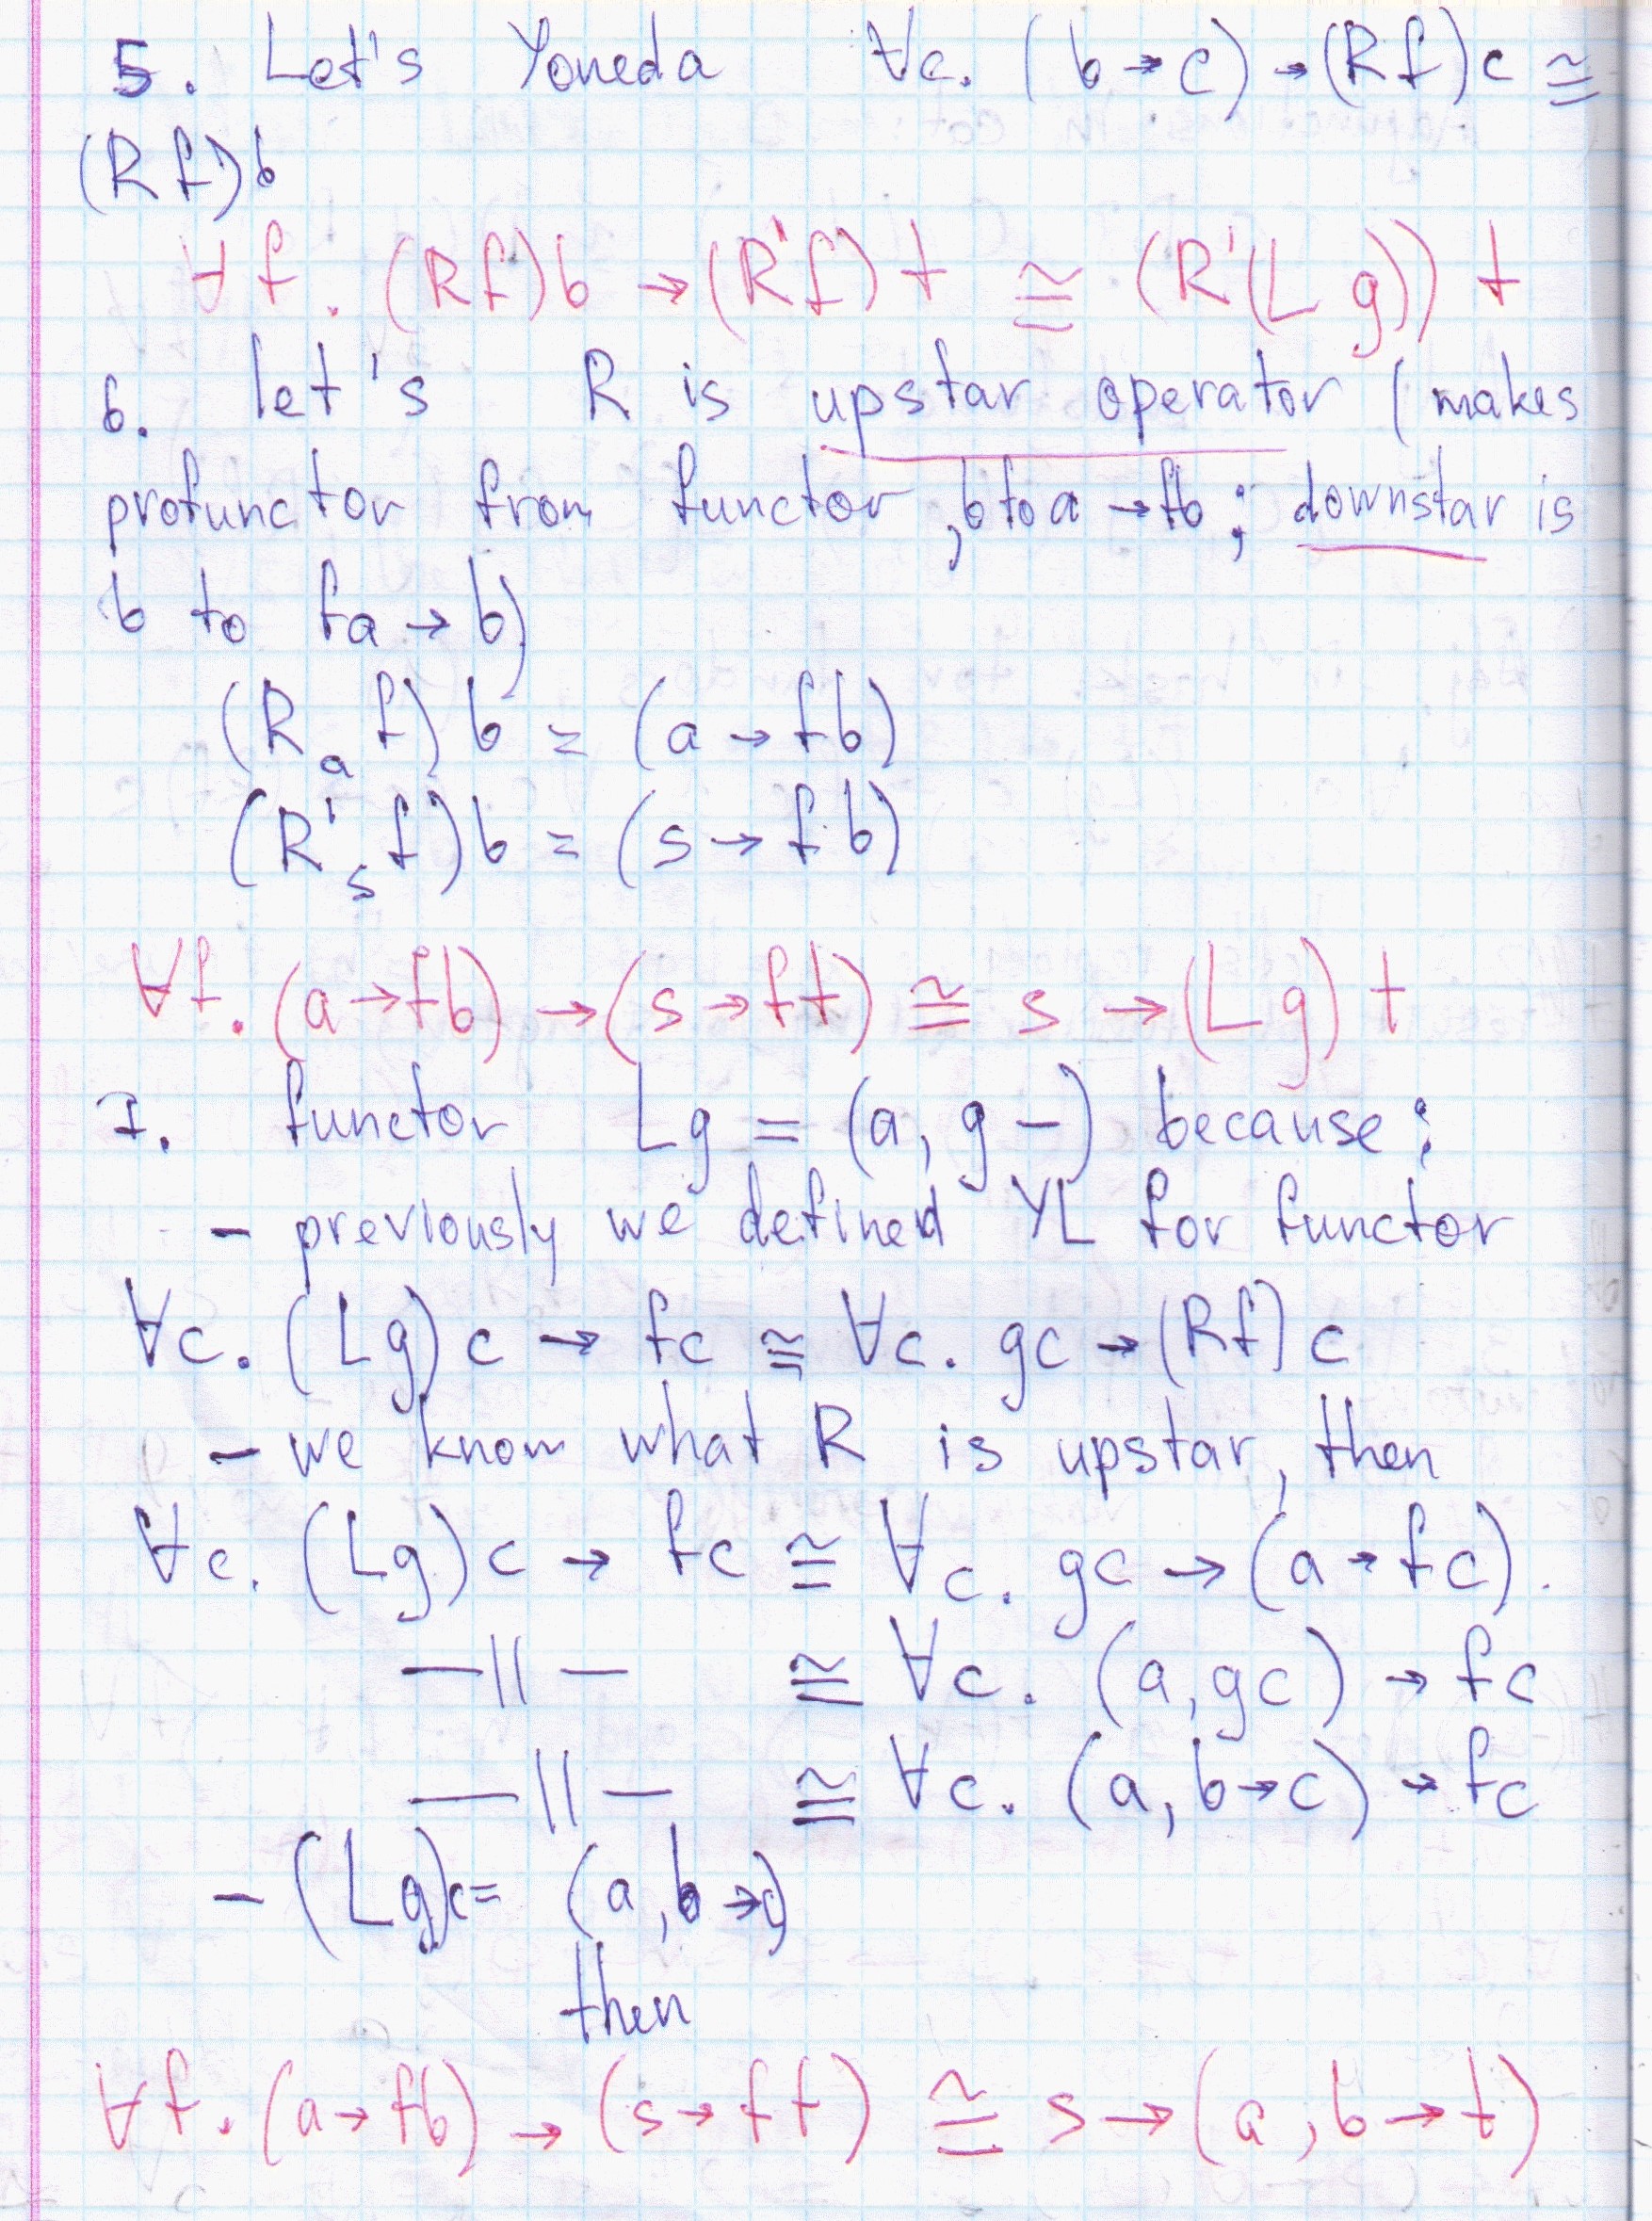 5. Let's Yoneda ∀c. (b → c) → (Rf)c ≅
(Rf)b
∀f. (Rf)b → (R'f) t ≅ (R'(L g)) t
6. let's R is upstar operator (makes
profunctor from functor, b to a → fb; downstar is
b to fa → b)
(R_a f) b = (a → fb)
(R'_s f) b = (s → f b)
∀f. (a → fb) → (s → ft) ≅ s → (L g) t
7. functor Lg = (a, g –) because:
– previously we defined YL for functor
∀c. (Lg) c → fc ≅ ∀c. gc → (Rf) c
– we know what R is upstar, then
∀c. (Lg) c → fc ≅ ∀c. gc → (a → fc).
—||— ≅ ∀c. (a, gc) → fc
—||— ≅ ∀c. (a, b → c) → fc
– (Lg)c = (a, b → c)
then
∀f. (a → fb) → (s → ft) ≅ s → (a, b → t)